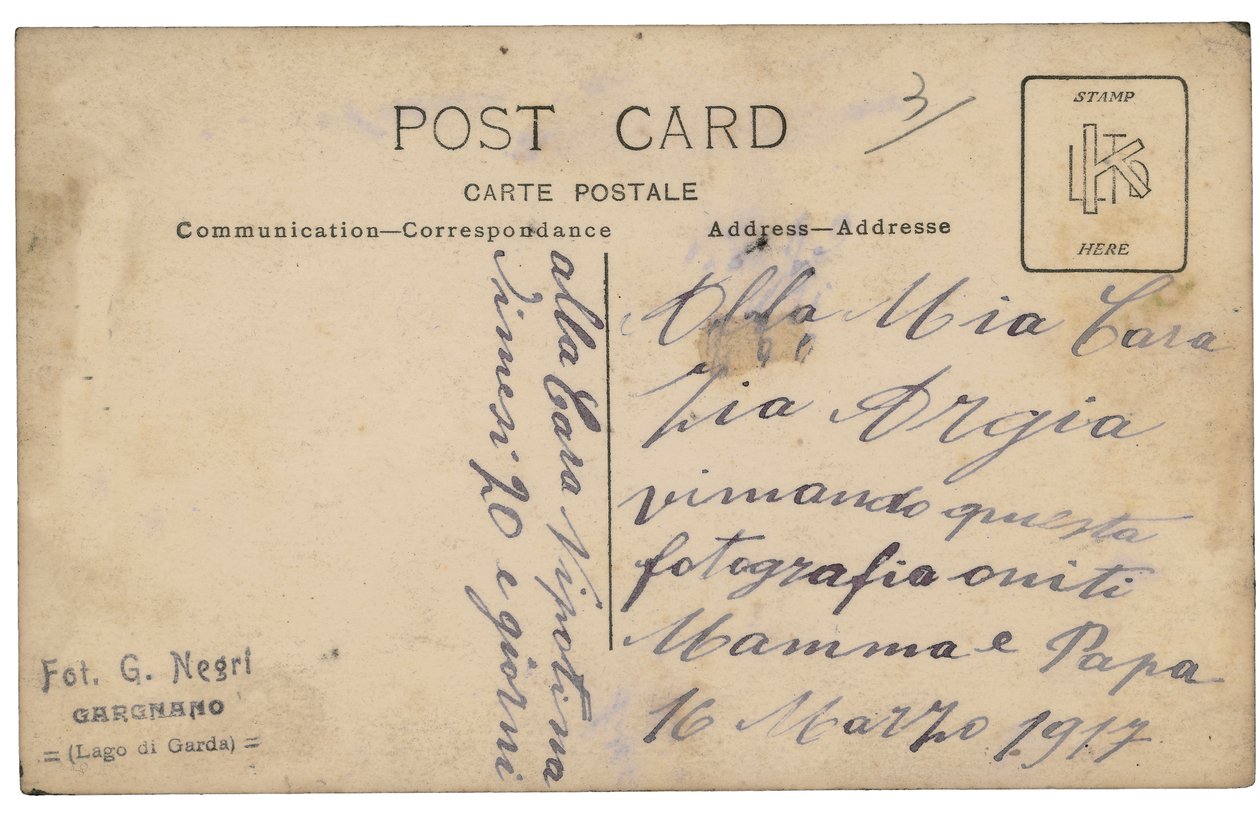 POST CARD
3/
CARTE POSTALE
Communication—Correspondance
Address—Addresse
STAMP
HERE
Alla Mia Cara
Zia Argia
vimando questa
fotografia oniti
Mamma e Papa
16 Marzo 1917
alla Cara Nipotina
mesi 20 e giorni
Fot. G. Negri
GARGNANO
= (Lago di Garda) =